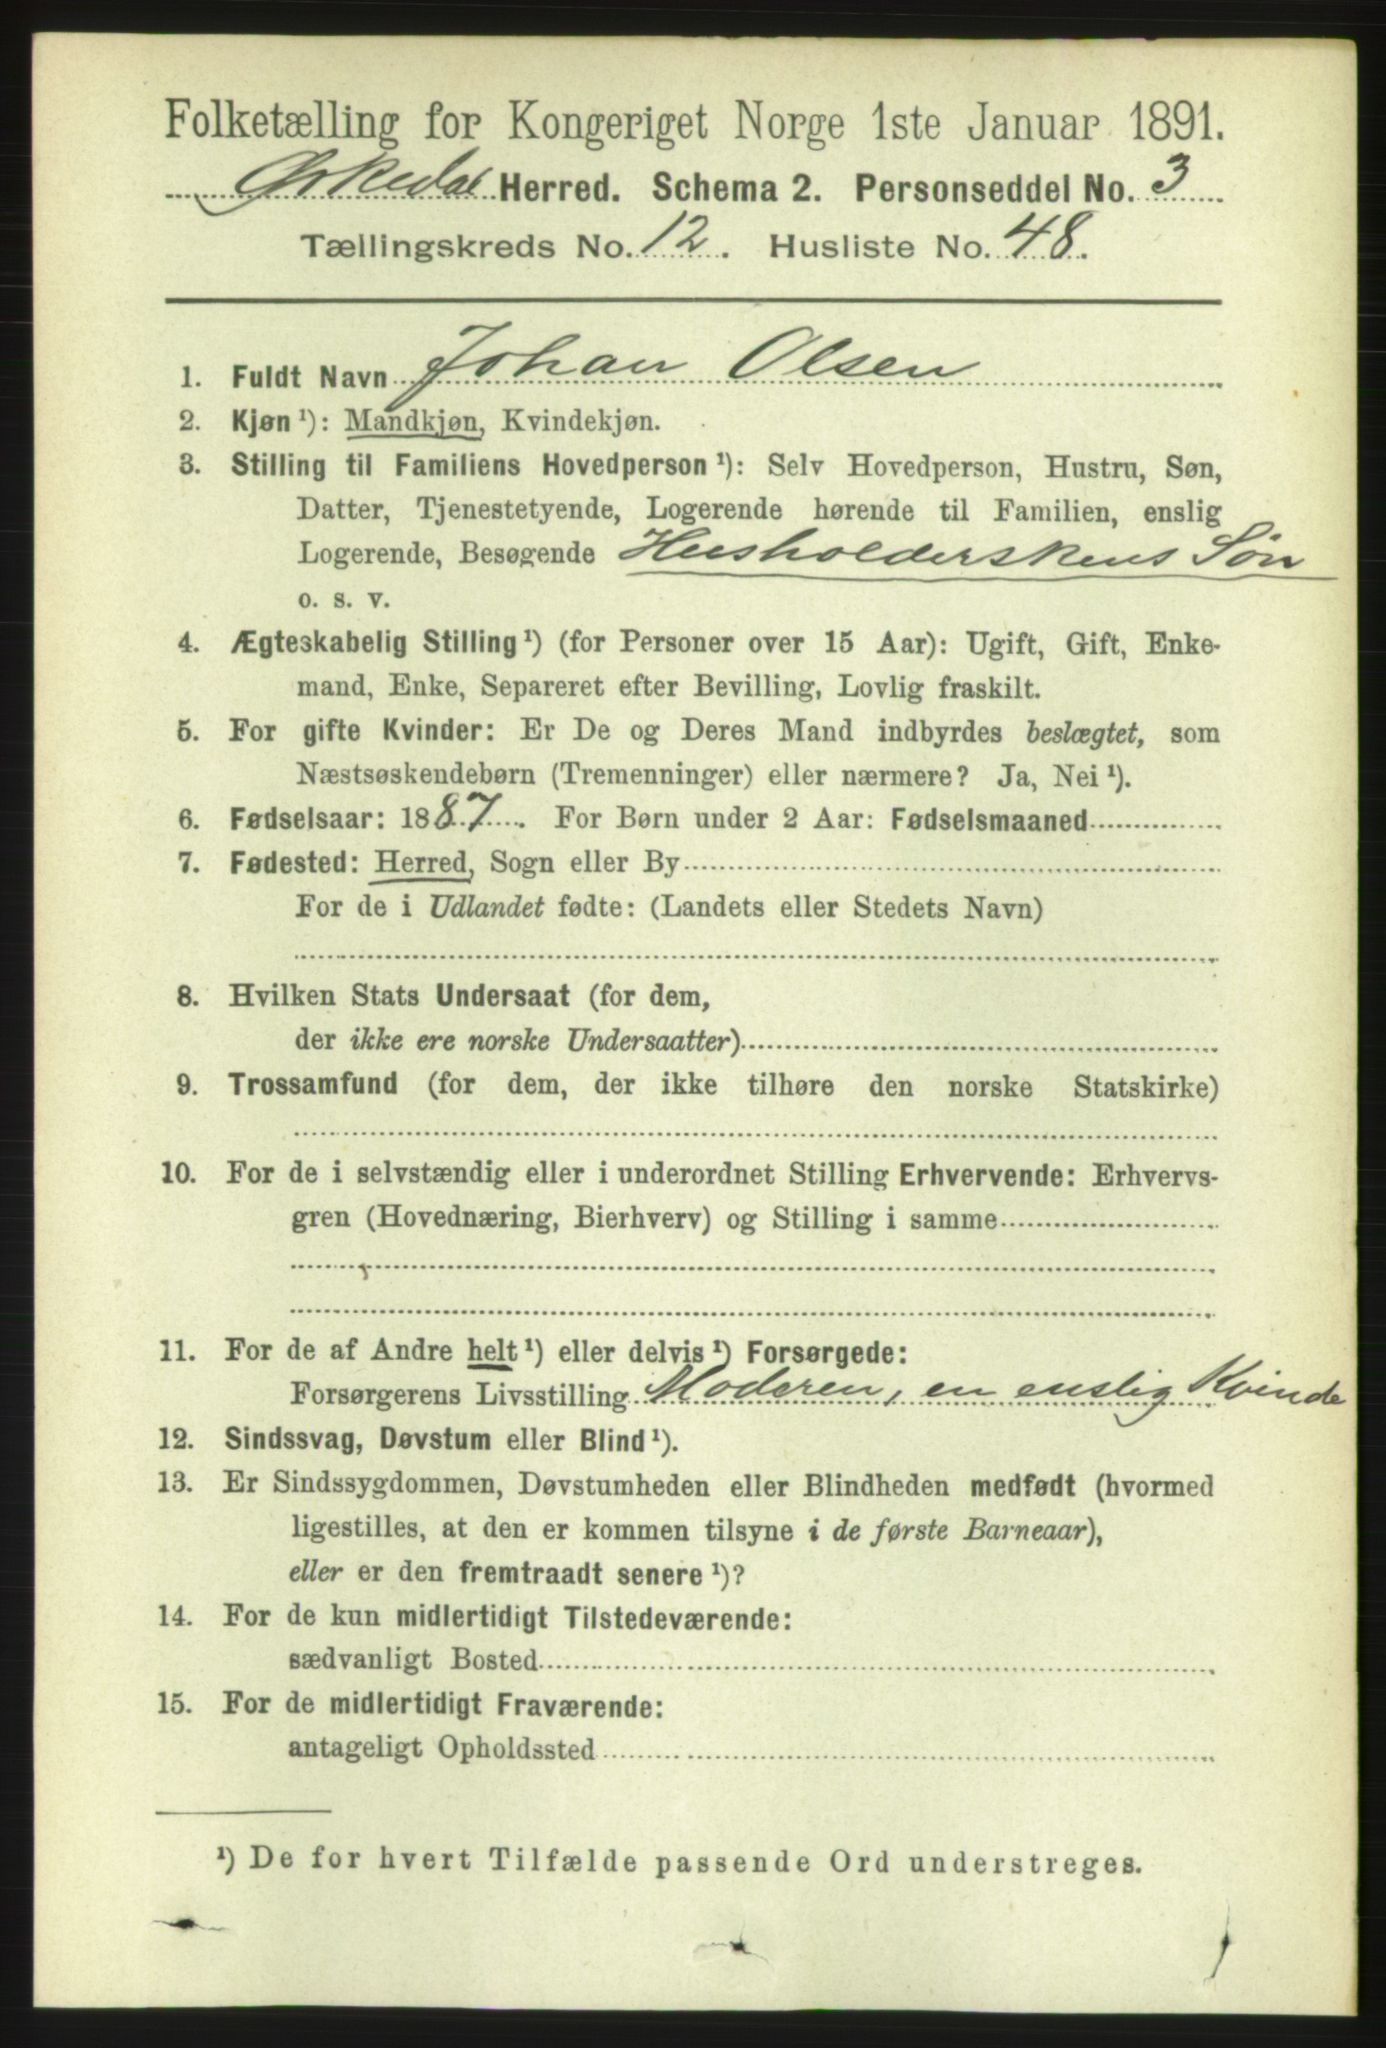 Folketælling for Kongeriget Norge 1ste Januar 1891.
Ørkedal Herred. Schema 2. Personseddel No. 3
Tællingskreds No. 12. Husliste No. 48.
1. Fuldt Navn Johan Olsen
2. Kjøn¹): Mandkjøn, Kvindekjøn.
3. Stilling til Familiens Hovedperson¹): Selv Hovedperson, Hustru, Søn,
Datter, Tjenestetyende, Logerende hørende til Familien, enslig
Logerende, Besøgende Husholderskens Søn
o. s. v.
4. Ægteskabelig Stilling¹) (for Personer over 15 Aar): Ugift, Gift, Enke-
mand, Enke, Separeret efter Bevilling, Lovlig fraskilt.
5. For gifte Kvinder: Er De og Deres Mand indbyrdes beslægtet, som
Næstsøskendebørn (Tremenninger) eller nærmere? Ja, Nei¹).
6. Fødselsaar: 1887. For Børn under 2 Aar: Fødselsmaaned
7. Fødested: Herred, Sogn eller By
For de i Udlandet fødte: (Landets eller Stedets Navn)
8. Hvilken Stats Undersaat (for dem,
der ikke ere norske Undersaatter)
9. Trossamfund (for dem, der ikke tilhøre den norske Statskirke)
10. For de i selvstændig eller i underordnet Stilling Erhvervende: Erhvervs-
gren (Hovednæring, Bierhverv) og Stilling i samme
11. For de af Andre helt¹) eller delvis¹) Forsørgede:
Forsørgerens Livsstilling Moderen, en enslig Kvinde
12. Sindssvag, Døvstum eller Blind¹).
13. Er Sindssygdommen, Døvstumheden eller Blindheden medfødt (hvormed
ligestilles, at den er kommen tilsyne i de første Barneaar),
eller er den fremtraadt senere¹)?
14. For de kun midlertidigt Tilstedeværende:
sædvanligt Bosted
15. For de midlertidigt Fraværende:
antageligt Opholdssted
¹) De for hvert Tilfælde passende Ord understreges.